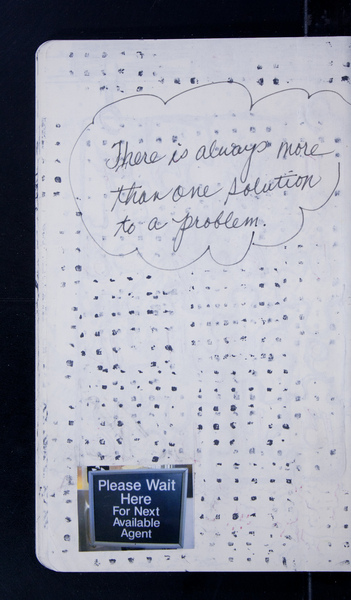 There is always more
than one solution
to a problem.
Please Wait
Here
For Next
Available
Agent